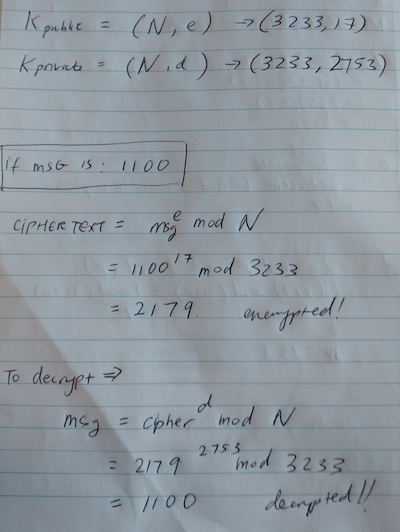 Kpublic = (N, e) → (3233, 17)
Kprivate = (N, d) → (3233, 2753)
if msG is : 1100
CIPHER TEXT = msg^e mod N
= 1100^17 mod 3233
= 2179. encrypted!
To decrypt ⇒
msg = cipher^d mod N
= 2179^2753 mod 3233
= 1100 decrypted!!